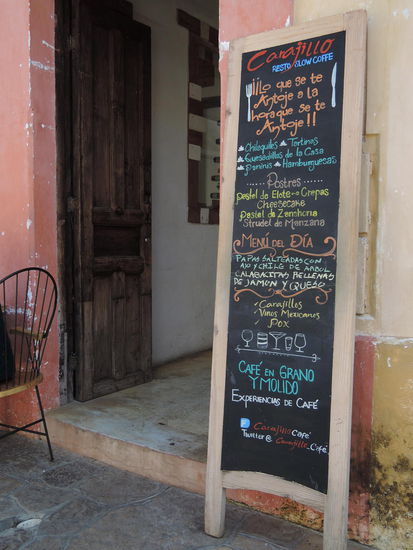 Carajillo
RESTO SLOW COFFE
¡¡Lo que se te
Antoje a la
hora que se te
Antoje!!
Chilaquiles Tortinas
Quesadillas de la Casa
Paninis Hamburguesas
Postres
Pastel de Elote Crepas
Cheesecake
Pastel de Zanahoria
Strudel de Manzana
Menú del Día
PAPAS SALTEADAS CON
AJO Y CHILE DE ÁRBOL
CALABACITAS RELLENAS
DE JAMÓN Y QUESO
Carajillos
Vinos Mexicanos
Pox
CAFÉ EN GRANO
Y MOLIDO
EXPERIENCIAS DE CAFÉ
Carajillo Café
Twitter @ Carajillo_Café